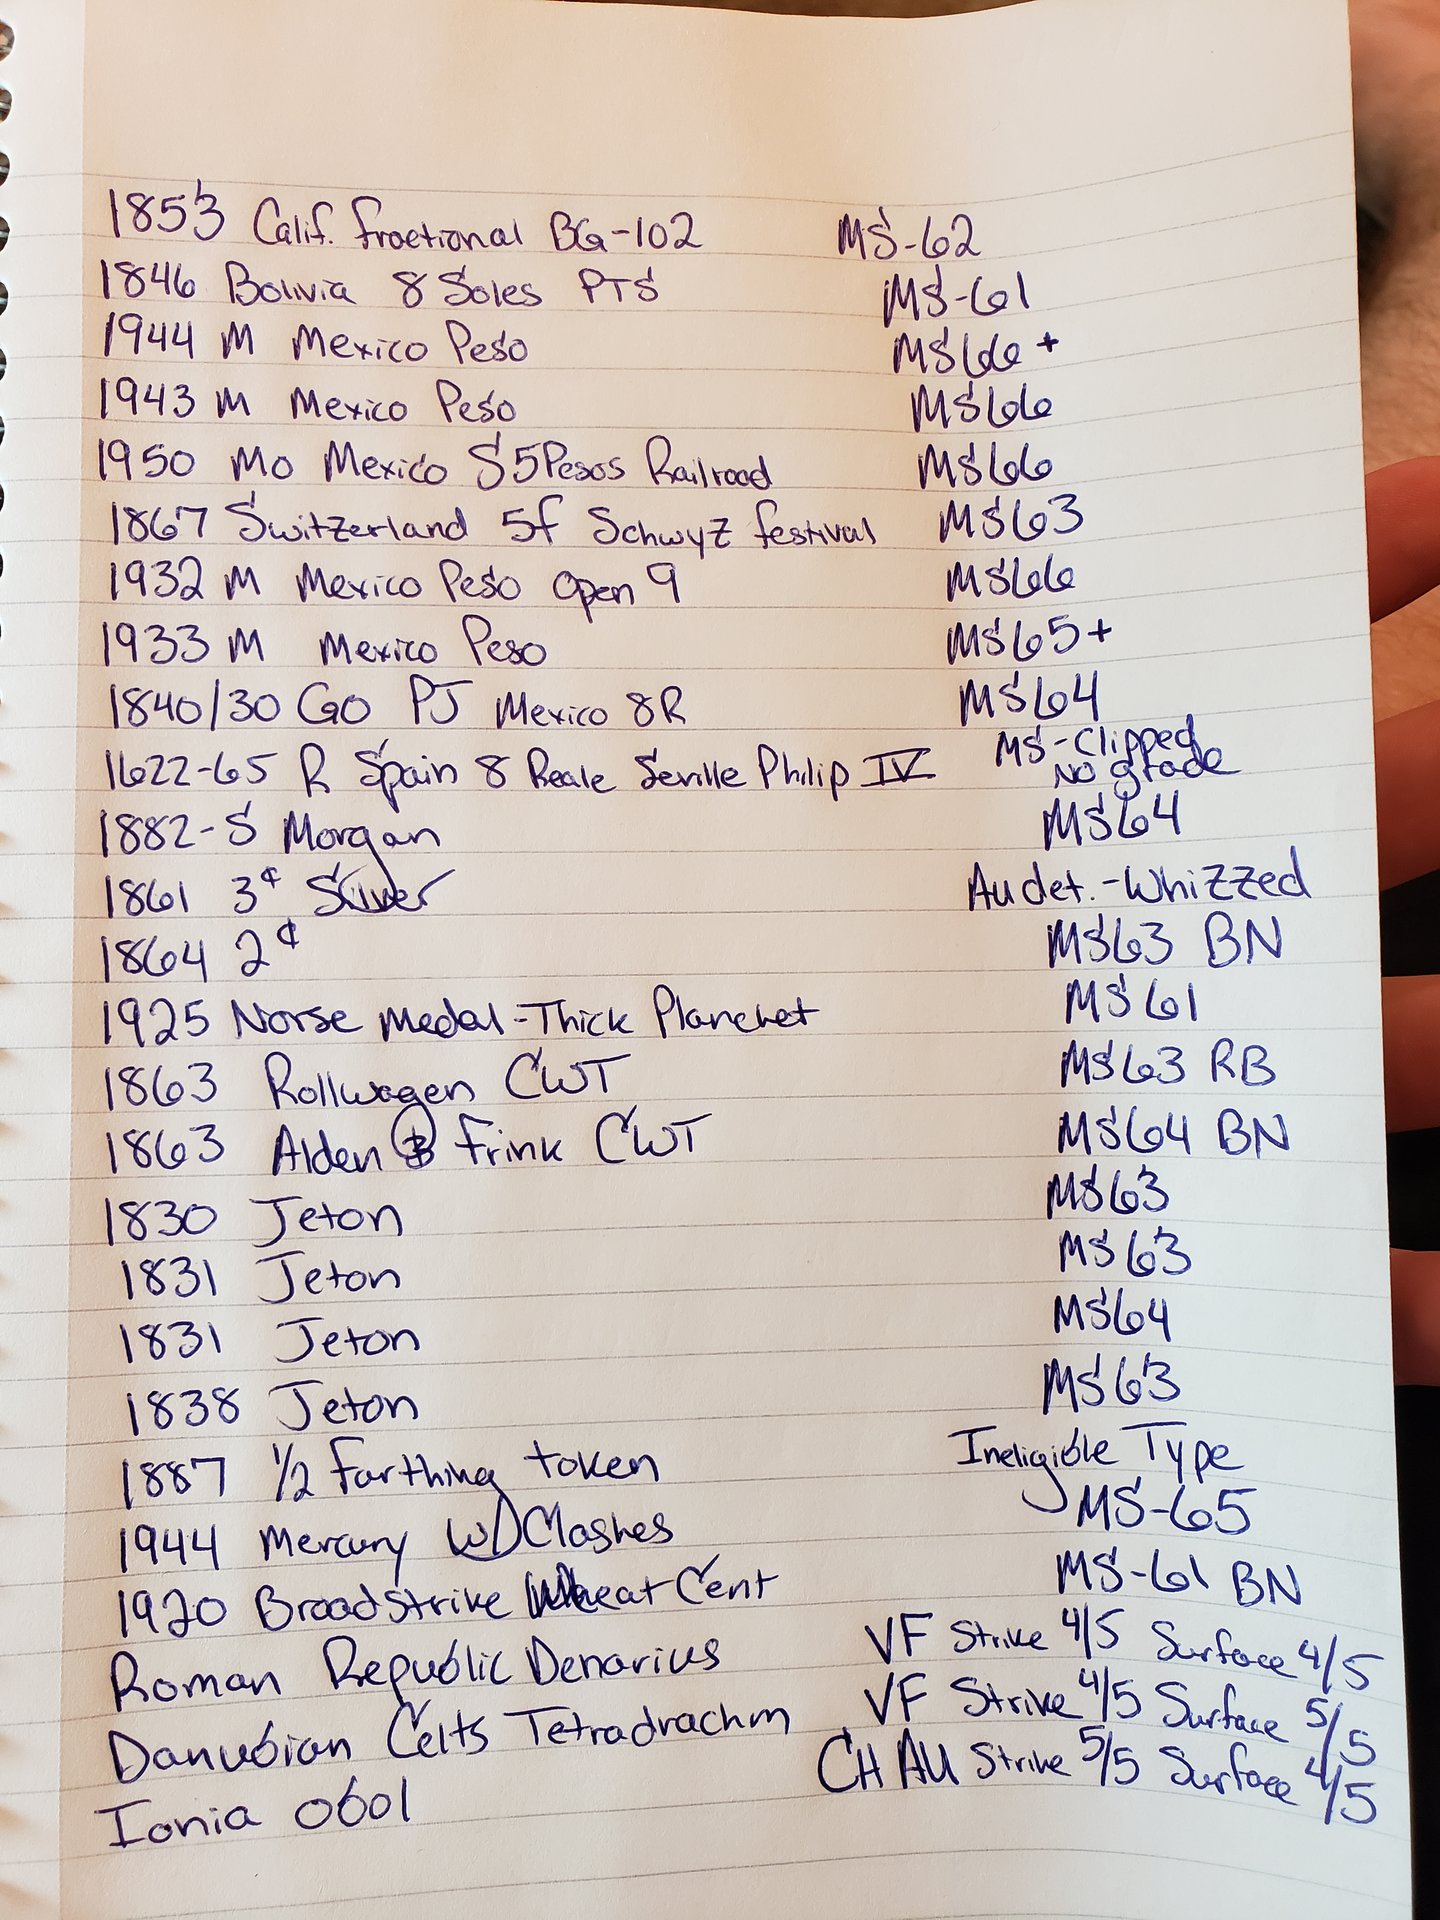 1853 Calif. fractional BG-102 MS-62
1846 Bolivia 8 Soles PTS MS-61
1944 M Mexico Peso MS66+
1943 M Mexico Peso MS66
1950 Mo Mexico S5Pesos Railroad MS66
1867 Switzerland 5f Schwyz festival MS63
1932 M Mexico Peso Open 9 MS66
1933 M Mexico Peso MS65+
1840/30 Go PJ Mexico 8R MS64
1622-65 R Spain 8 Reale Seville Philip IV MS-Clipped
No grade
1882-S Morgan MS64
1861 3¢ Silver Au det.-Whizzed
1864 2¢ MS63 BN
1925 Norse Medal-Thick Planchet MS61
1863 Rollwagen CWT MS63 RB
1863 Alden & Frink CWT MS64 BN
1830 Jeton MS63
1831 Jeton MS63
1831 Jeton MS64
1838 Jeton MS63
1887 1/2 farthing token Ineligible Type
1944 Mercury w/Clashes MS-65
1920 Broadstrike Wheat Cent MS-61 BN
Roman Republic Denarius VF Strike 4/5 Surface 4/5
Danubian Celts Tetradrachm VF Strike 4/5 Surface 5/5
Ionia Obol CH AU Strike 5/5 Surface 4/5